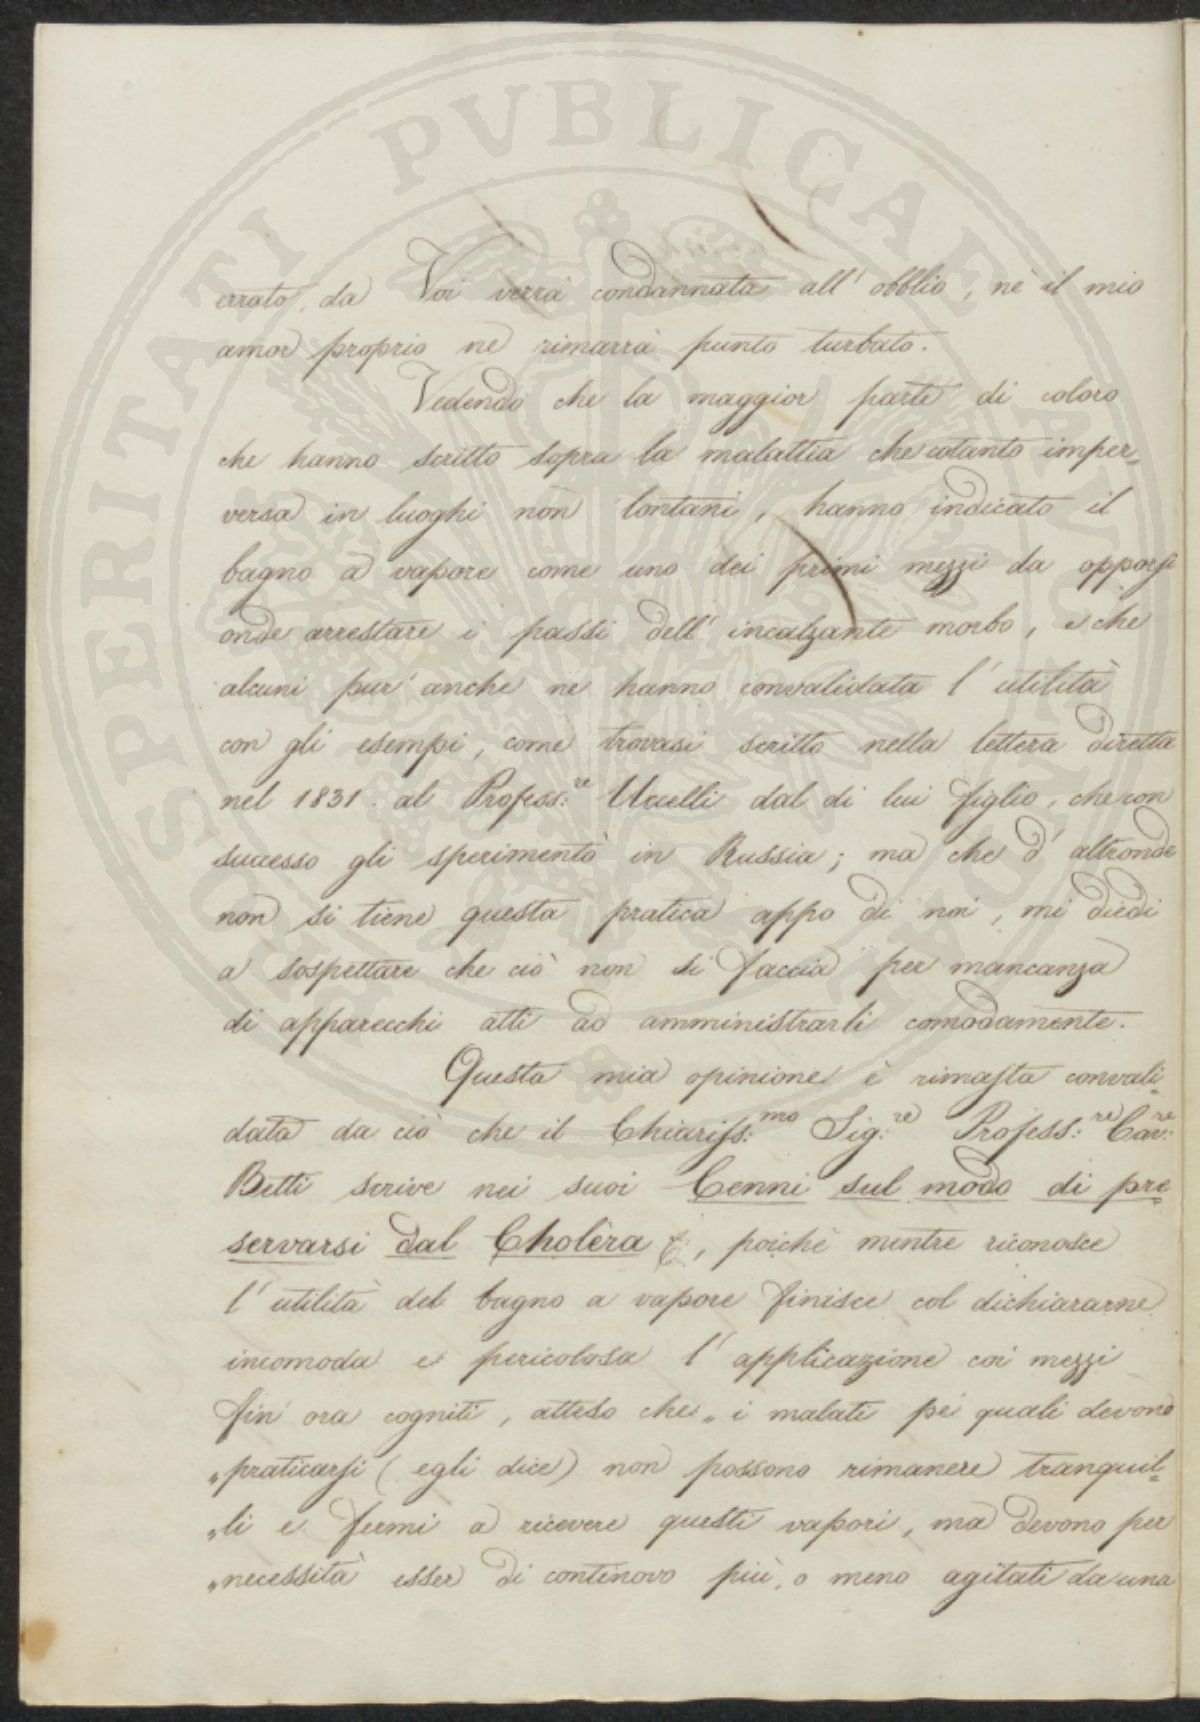 errato, da Voi verrà condannata all' obblio, nè il mio
amor proprio ne rimarrà punto turbato.
Vedendo che la maggior parte di coloro
che hanno scritto sopra la malattia che cotanto imper=
versa in luoghi non lontani, hanno indicato il
bagno a vapore come uno dei primi mezzi da opporsi
onde arrestare i passi dell' incalzante morbo, e che
alcuni pur' anche ne hanno convalidata l' utilità
con gli esempi, come trovasi scritto nella lettera diretta
nel 1831. al Profess:re Uccelli dal di lui figlio, che con
successo gli sperimentò in Russia; ma che d' altronde
non si tiene questa pratica appo di noi, mi diedi
a sospettare che ciò non si faccia per mancanza
di apparecchi atti ad amministrarli comodamente.
Questa mia opinione è rimasta convali=
data da ciò che il Chiariss:mo Sig:re Profess:re Cav:re
Betti scrive nei suoi Cenni sul modo di pre=
servarsi dal Cholèra &, poichè mentre riconosce
l' utilità del bagno a vapore finisce col dichiararne
incomoda e pericolosa l' applicazione coi mezzi
fin' ora cogniti, atteso che „ i malati pe' quali devono
„praticarsi (egli dice) non possono rimanere tranquil=
„li e fermi a ricevere questi vapori, ma devono per
„necessità esser di continovo più, o meno agitati da una
SPERITATI PVBLICAE